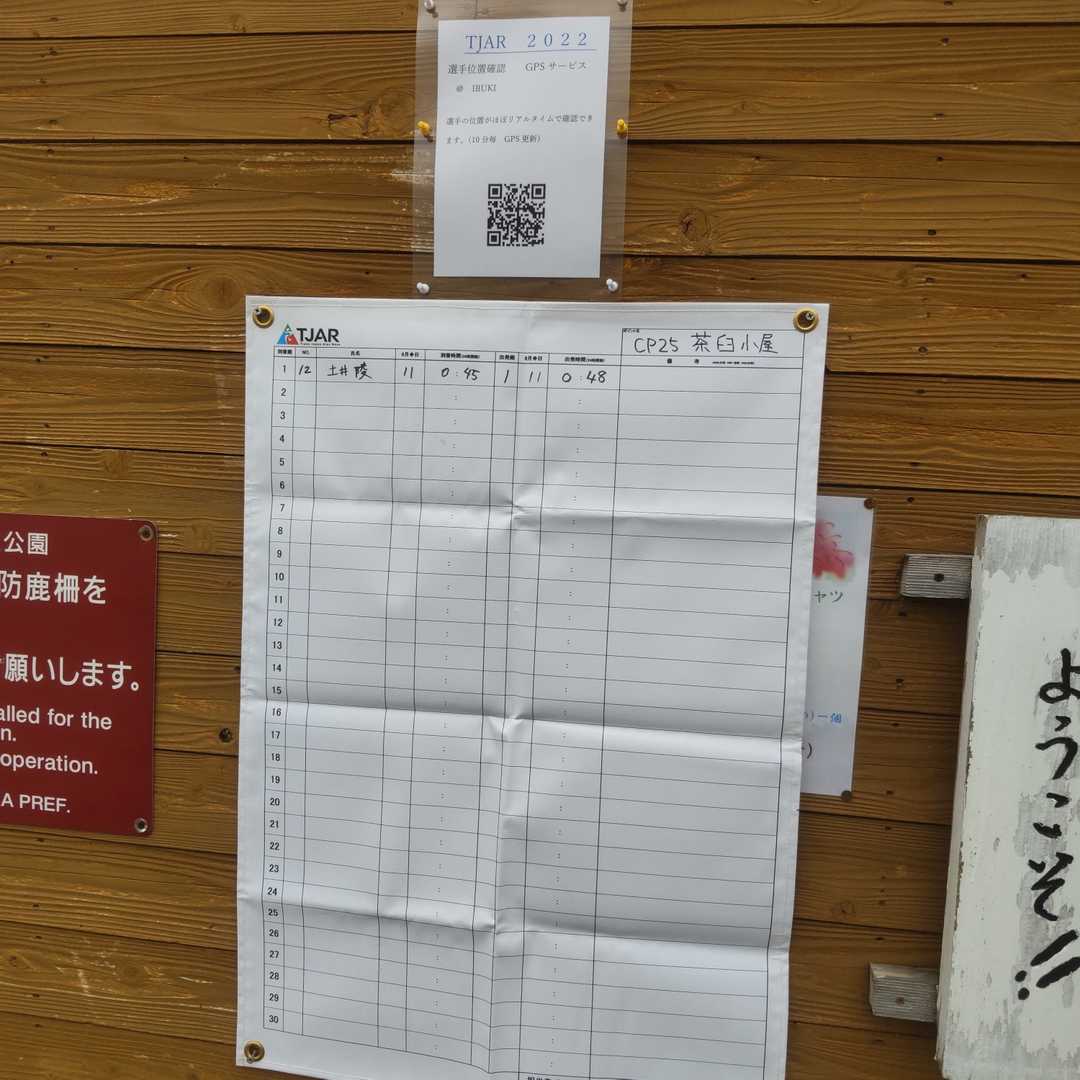 TJAR 2022
選手位置確認 GPSサービス
@ IBUKI
選手の位置がほぼリアルタイムで確認でき
ます。(10分毎 GPS更新)
TJAR
CP25 茶臼小屋
到着順 NO. 氏名 8月◆日 到着時間 出発順 8月◆日 出発時間 備考
1 12 土井陵 11 0:45 1 11 0:48
2 : :
3 : :
4 : :
5 : :
6 : :
7 : :
8 : :
9 : :
10 : :
11 : :
12 : :
13 : :
14 : :
15 : :
16 : :
17 : :
18 : :
19 : :
20 : :
21 : :
22 : :
23 : :
24 : :
25 : :
26 : :
27 : :
28 : :
29 : :
30 : :
公園
防鹿柵を
願いします。
alled for the
n.
operation.
A PREF.
ャツ
)一個
)
ようこそ!!